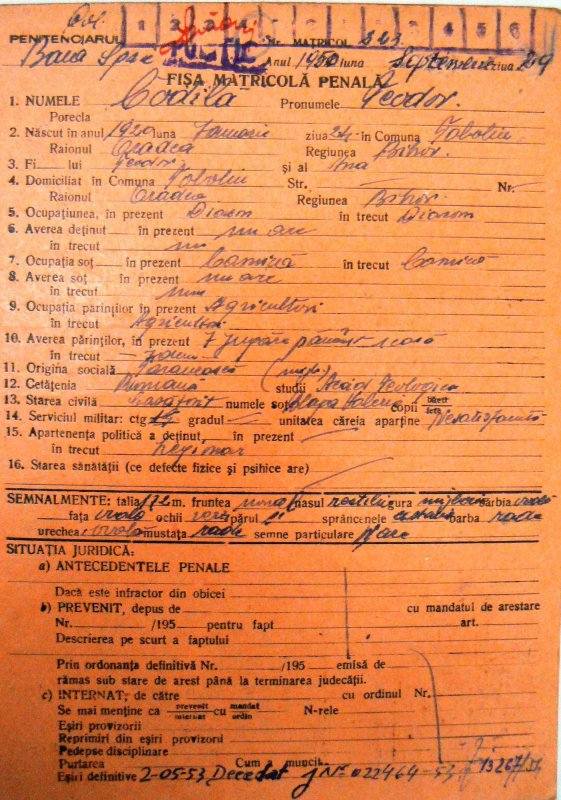 PENITENCIARUL POLITIC Nr. MATRICOL
Baia Sprie Anul 1950 luna Septembrie ziua 29
FIȘA MATRICOLĂ PENALĂ
1. NUMELE Codila Pronumele Teodor.
Porecla
2. Născut în anul 1920 luna Ianuarie ziua 24 în Comuna Toboliu
Raionul Oradea Regiunea Bihor.
3. Fi lui Teodor și al Ana
4. Domiciliat în Comuna Toboliu Str. Nr.
Raionul Oradea Regiunea Bihor.
5. Ocupațiunea, în prezent Diacon în trecut Diacon
6. Averea deținut în prezent nu are
în trecut nu
7. Ocupația soț în prezent Casnică în trecut Casnică
8. Averea soț în prezent nu are
în trecut nu
9. Ocupația părinților în prezent Agricultori
în trecut Agricultori
10. Averea părinților, în prezent 7 jugăre pământ casă
în trecut
11. Origina socială Țărănească
12. Cetățenia Română studii Acad. Teologica
13. Starea civilă Căsătorit numele soț Valeria copii băieți fete
14. Serviciul militar: ctg gradul unitatea căreia aparține Nesatisfăcută
15. Apartenența politică a deținut, în prezent
în trecut Legionar
16. Starea sănătății (ce defecte fizice și psihice are)
SEMNALMENTE: talia 1,72 m. fruntea nasul rectiliu gura mijlocie bărbia ovală
fața ovală ochii părul sprâncenele castanii barba rade
urechea: ovală mustața rade semne particulare N'are
SITUAȚIA JURIDICĂ:
a) ANTECEDENTELE PENALE
Dacă este infractor din obicei
b) PREVENIT, depus de cu mandatul de arestare
Nr. /195 pentru fapt art.
Descrierea pe scurt a faptului
Prin ordonanța definitivă Nr. /195 emisă de
rămas sub stare de arest până la terminarea judecății.
c) INTERNAT, de către cu ordinul Nr.
Se mai menține ca prevenit internat cu mandat ordin N-rele
Eșiri provizorii
Reprimiri din eșiri provizorii
Pedepse disciplinare
Purtarea Cum a muncit
Eșiri definitive 2-05-53, Decedat j Nº 022464-53